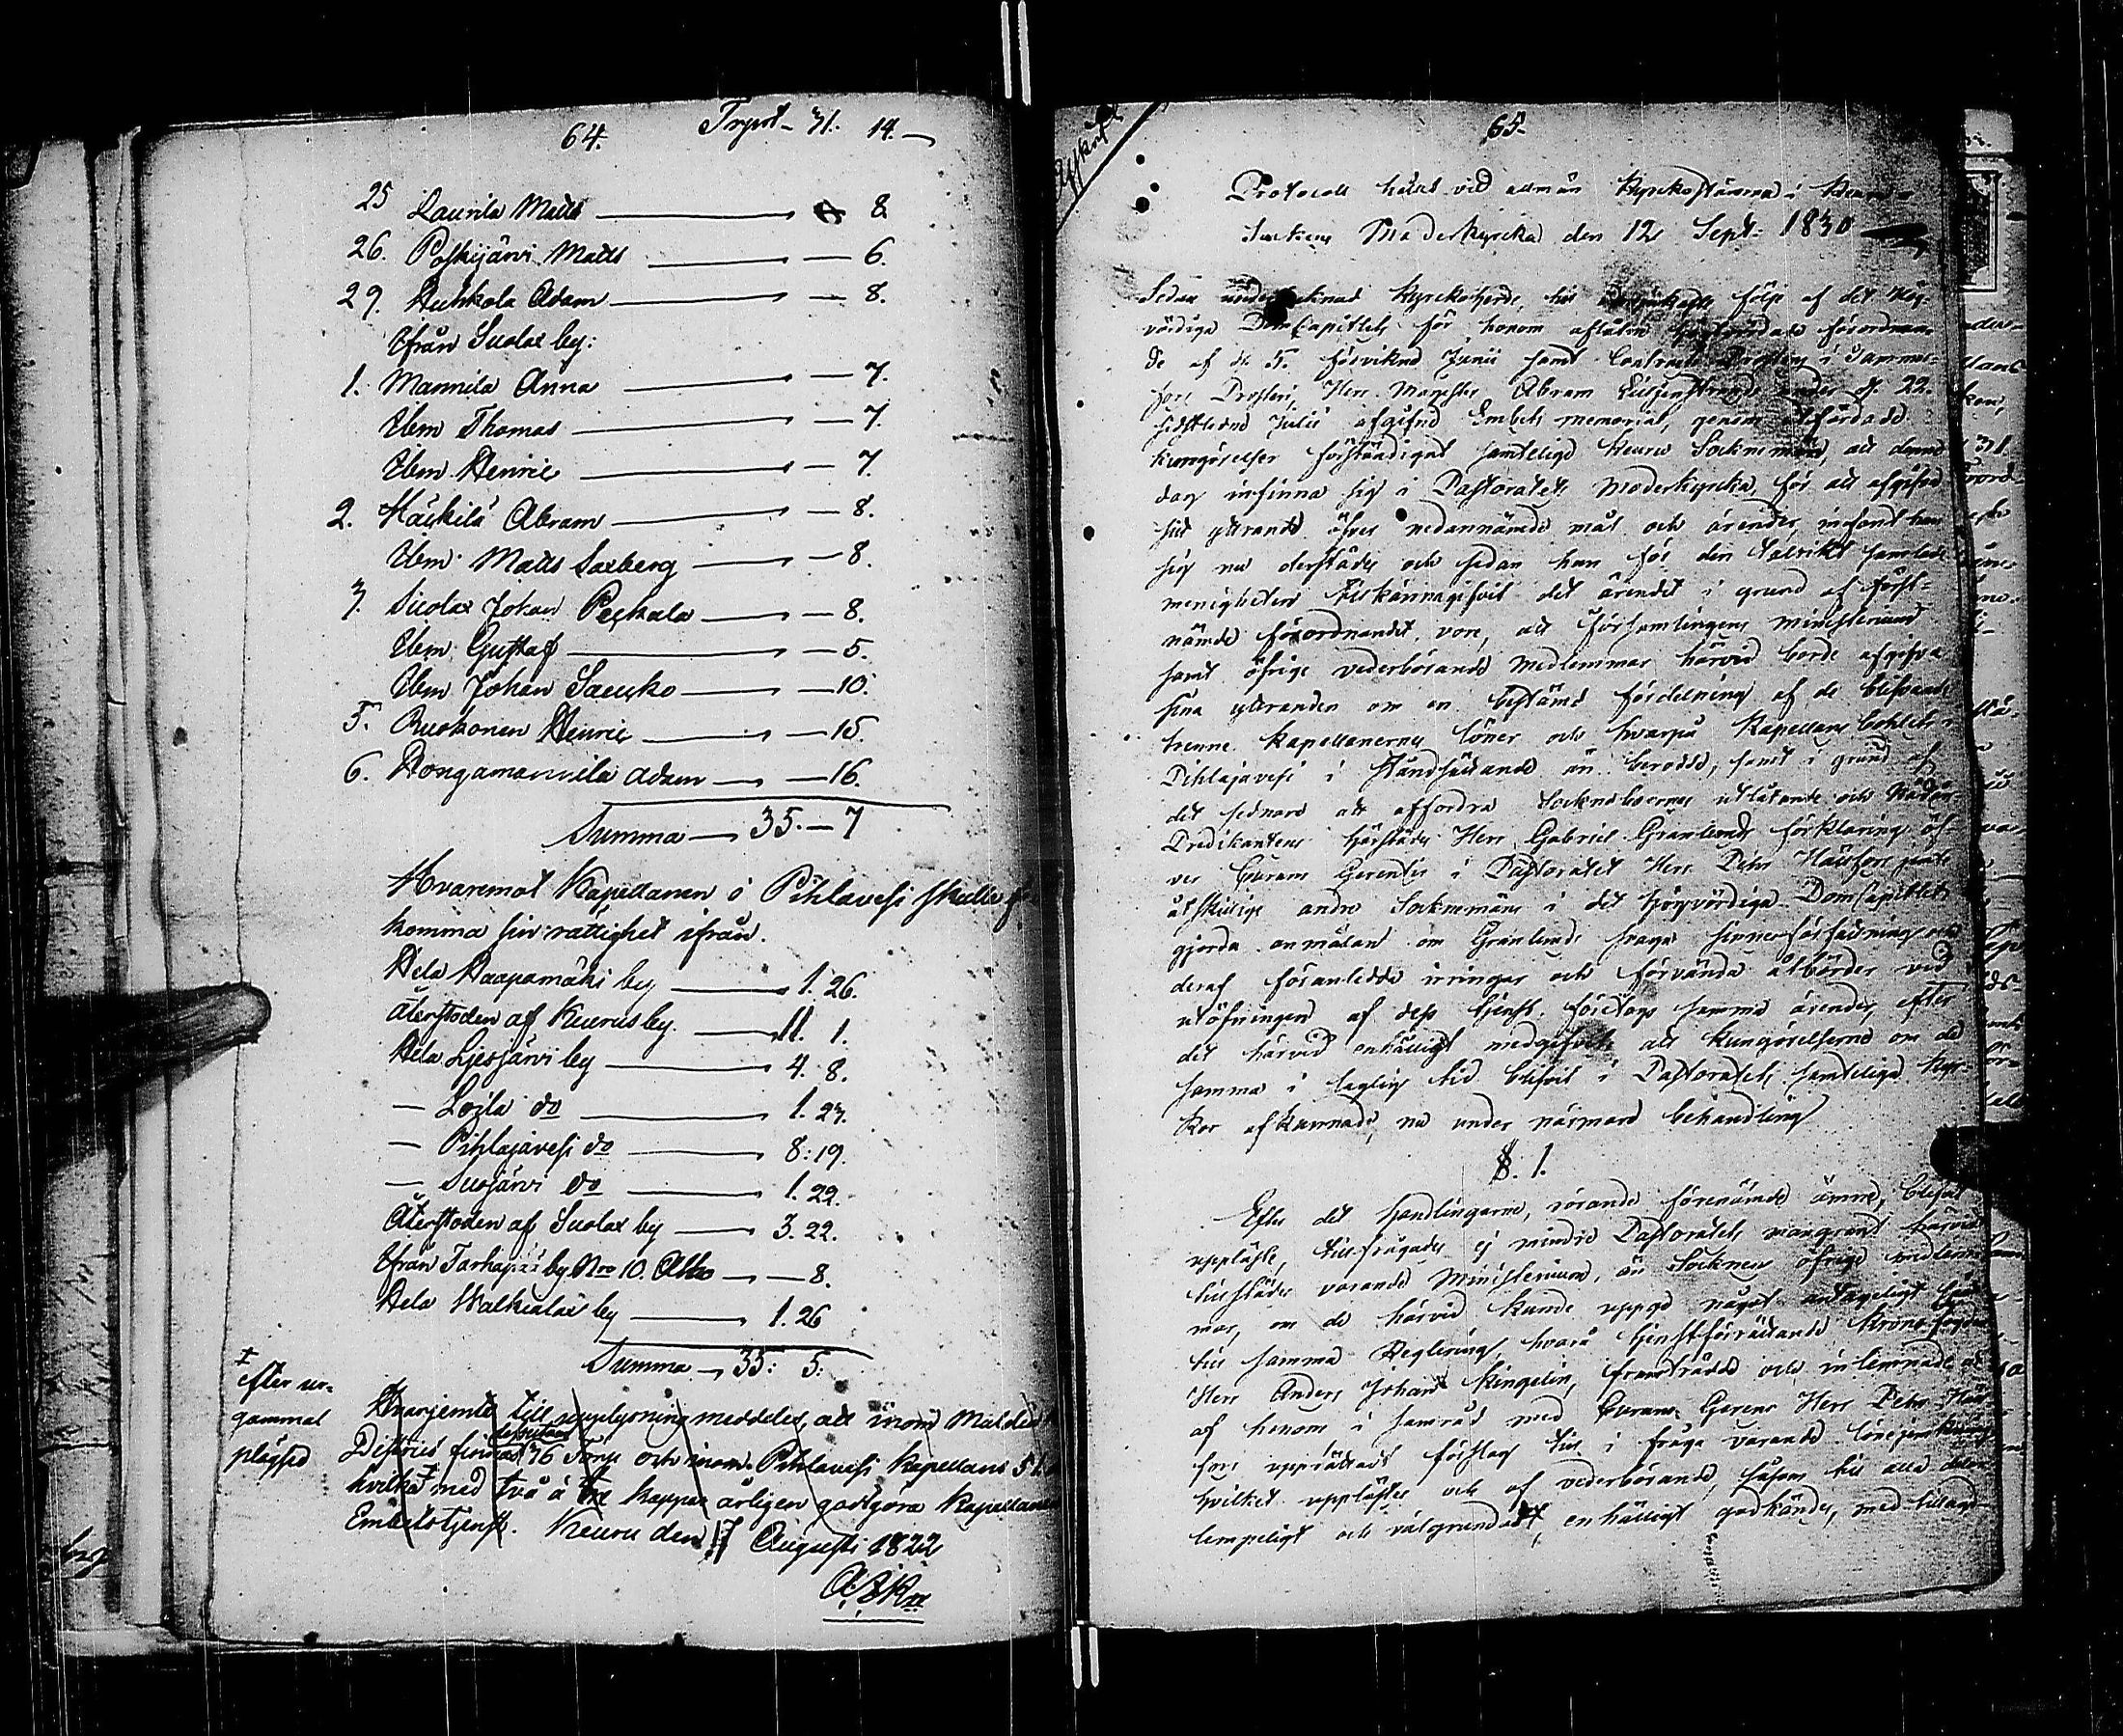 64. Trpt - 31. 14. —
25 Laurila Matts — 8
26. Poskijärvi Matts — 6.
29. Huhkola Adam — 8.
Ifrån Suolax by:
1. Mannila Anna — 7.
Ibm Thomas — 7.
Ibm Henric — 7.
2. Häckilä Abram — 8.
Ibm Matts Saxberg — 8.
3. Suolax Johan Peckala — 8.
Ibm Gustaf — 5.
Ibm Johan Saucko — 10.
5. Ruokonen Henric — 15.
6. Hongamannila Adam — 16.
Summa — 35. — 7
Hvaremot Kapellanen i Pihlavesi skulle
komma sin rättighet ifrån.
Hela Haapamäki by — 1. 26.
återstoden af Keurus by. — 11. 1.
Hela Liesjärvi by — 4. 8.
— Loila do — 1. 23.
— Pihlajavesi do — 8: 19.
— Suojärvi do — 1. 22.
Återstoden af Suolax by — 3. 22.
Ifrån Tarhapää by Nro 10. Alho — 8.
Hela Walkealax by — 1. 26
Summa — 35: 5:
‡
efter ur-
gammal
plägsed
Hvarjemte till upplysning meddeles, att inom Multia
District finnas 76 Torp och inom Pihlavesi Kapellans 5
hvilka ‡ med två à tre kappar årligen godtgöra Kapellanens
Embetstjenst. Keuru den 17 Augusti 1822
65.
Protocoll hållit vid allmän Kyrkostämma i Keuru
Sockens Moderkyrka den 12 Sept: 1830
Sedan undertecknad Kyrkoherde, till följe af det Hög-
vördiga DomCapitlets för honom aflåtne förordnan-
de af d. 5. förvikne Junii samt Contracts Prosten i Tammer-
fors Prosteri, Herr Magister Abram Liljenstrand under d. 22.
sistledne Julii afgifne Embets memorial, genom utfärdade
kungörelser förständigat samtelige Keuru Sockne män, att denne
dag infinna sig i Pastoratets Moderkyrka för att afgifva
sitt yttrande öfver nedannämde mål och ärender, infant han
sig nu derstädes och sedan han för den talrikt samlade
menigheten tillkännagifvit det ärendet i grund af först-
nämde förordnandet vore, att Församlingens ministerium
samt öfrige vederbörande medlemmar härvid borde afgifva
sina yttranden om en bestämd fördelning af de blifvande
trenne Kapellanernes löner och hvarpå Kapellans boställets i
Pihlajavesi i ståndsättande än berodde, samt i grund af
det sednare att affordra Socknebornes utlåtande och
Predikantens härstädes Herr Gabriel Granlunds förklaring öf-
ver Curam Gerentis i Pastoratet Herr Petter Hällfors jemte
åtskillige andre Sockne mäns i det högvördiga Domcapitlet
gjorda anmälan om Granlunds svaga sinnesförfattning och
deraf föranledde irringar och förvända åtbörder vid
utöfningen af dess tjenst, företogs samma ärender, efter
det härvid enhälligt medgifvits att kungörelserne om de
samma i laglig tid blifvit i Pastoratets samtelige Kyr-
kor afkunnade, nu under närmare behandling
§. 1.
Efter det handlingarne, rörande förenämde ämne, blifvit
uppläste, tillfrågades ej mindre Pastoratets mangrant härvid
tillstädes varande Ministerium, än Socknens öfrige medlem-
mar, om de härvid kunde uppge något antageligt
till samma Reglering, hvarå tjenstförrättande Kronofogden
Herr Anders Johan Kingelin, framträdde och inlemnade et
af honom i samråd med Curam Gerens Herr Petter Häll-
fors upprättadt förslag till i fråga varande lönejemkning
hvilket upplästes och af vederbörande, såsom till alla delar
lempeligt och välgrundadt, enhälligt godkändes, med tillägg